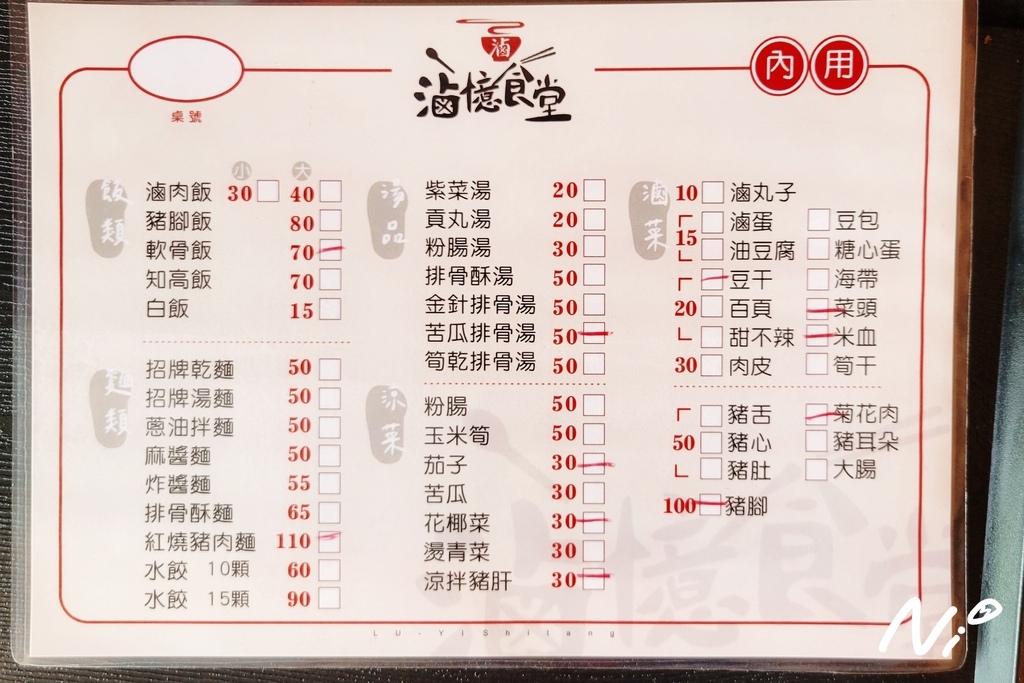 滷
滷憶食堂
內用
桌號
飯類
小 大
滷肉飯 30 40
豬腳飯 80
軟骨飯 70
知高飯 70
白飯 15
麵類
招牌乾麵 50
招牌湯麵 50
蔥油拌麵 50
麻醬麵 50
炸醬麵 55
排骨酥麵 65
紅燒豬肉麵 110
水餃 10顆 60
水餃 15顆 90
湯品
紫菜湯 20
貢丸湯 20
粉腸湯 30
排骨酥湯 50
金針排骨湯 50
苦瓜排骨湯 50
筍乾排骨湯 50
涼菜
粉腸 50
玉米筍 50
茄子 30
苦瓜 30
花椰菜 30
燙青菜 30
涼拌豬肝 30
滷菜
10 滷丸子
滷蛋 豆包
15 油豆腐 糖心蛋
豆干 海帶
20 百頁 菜頭
甜不辣 米血
30 肉皮 筍干
豬舌 菊花肉
50 豬心 豬耳朵
豬肚 大腸
100 豬腳
滷憶食堂
LU-YiShitang
Ni